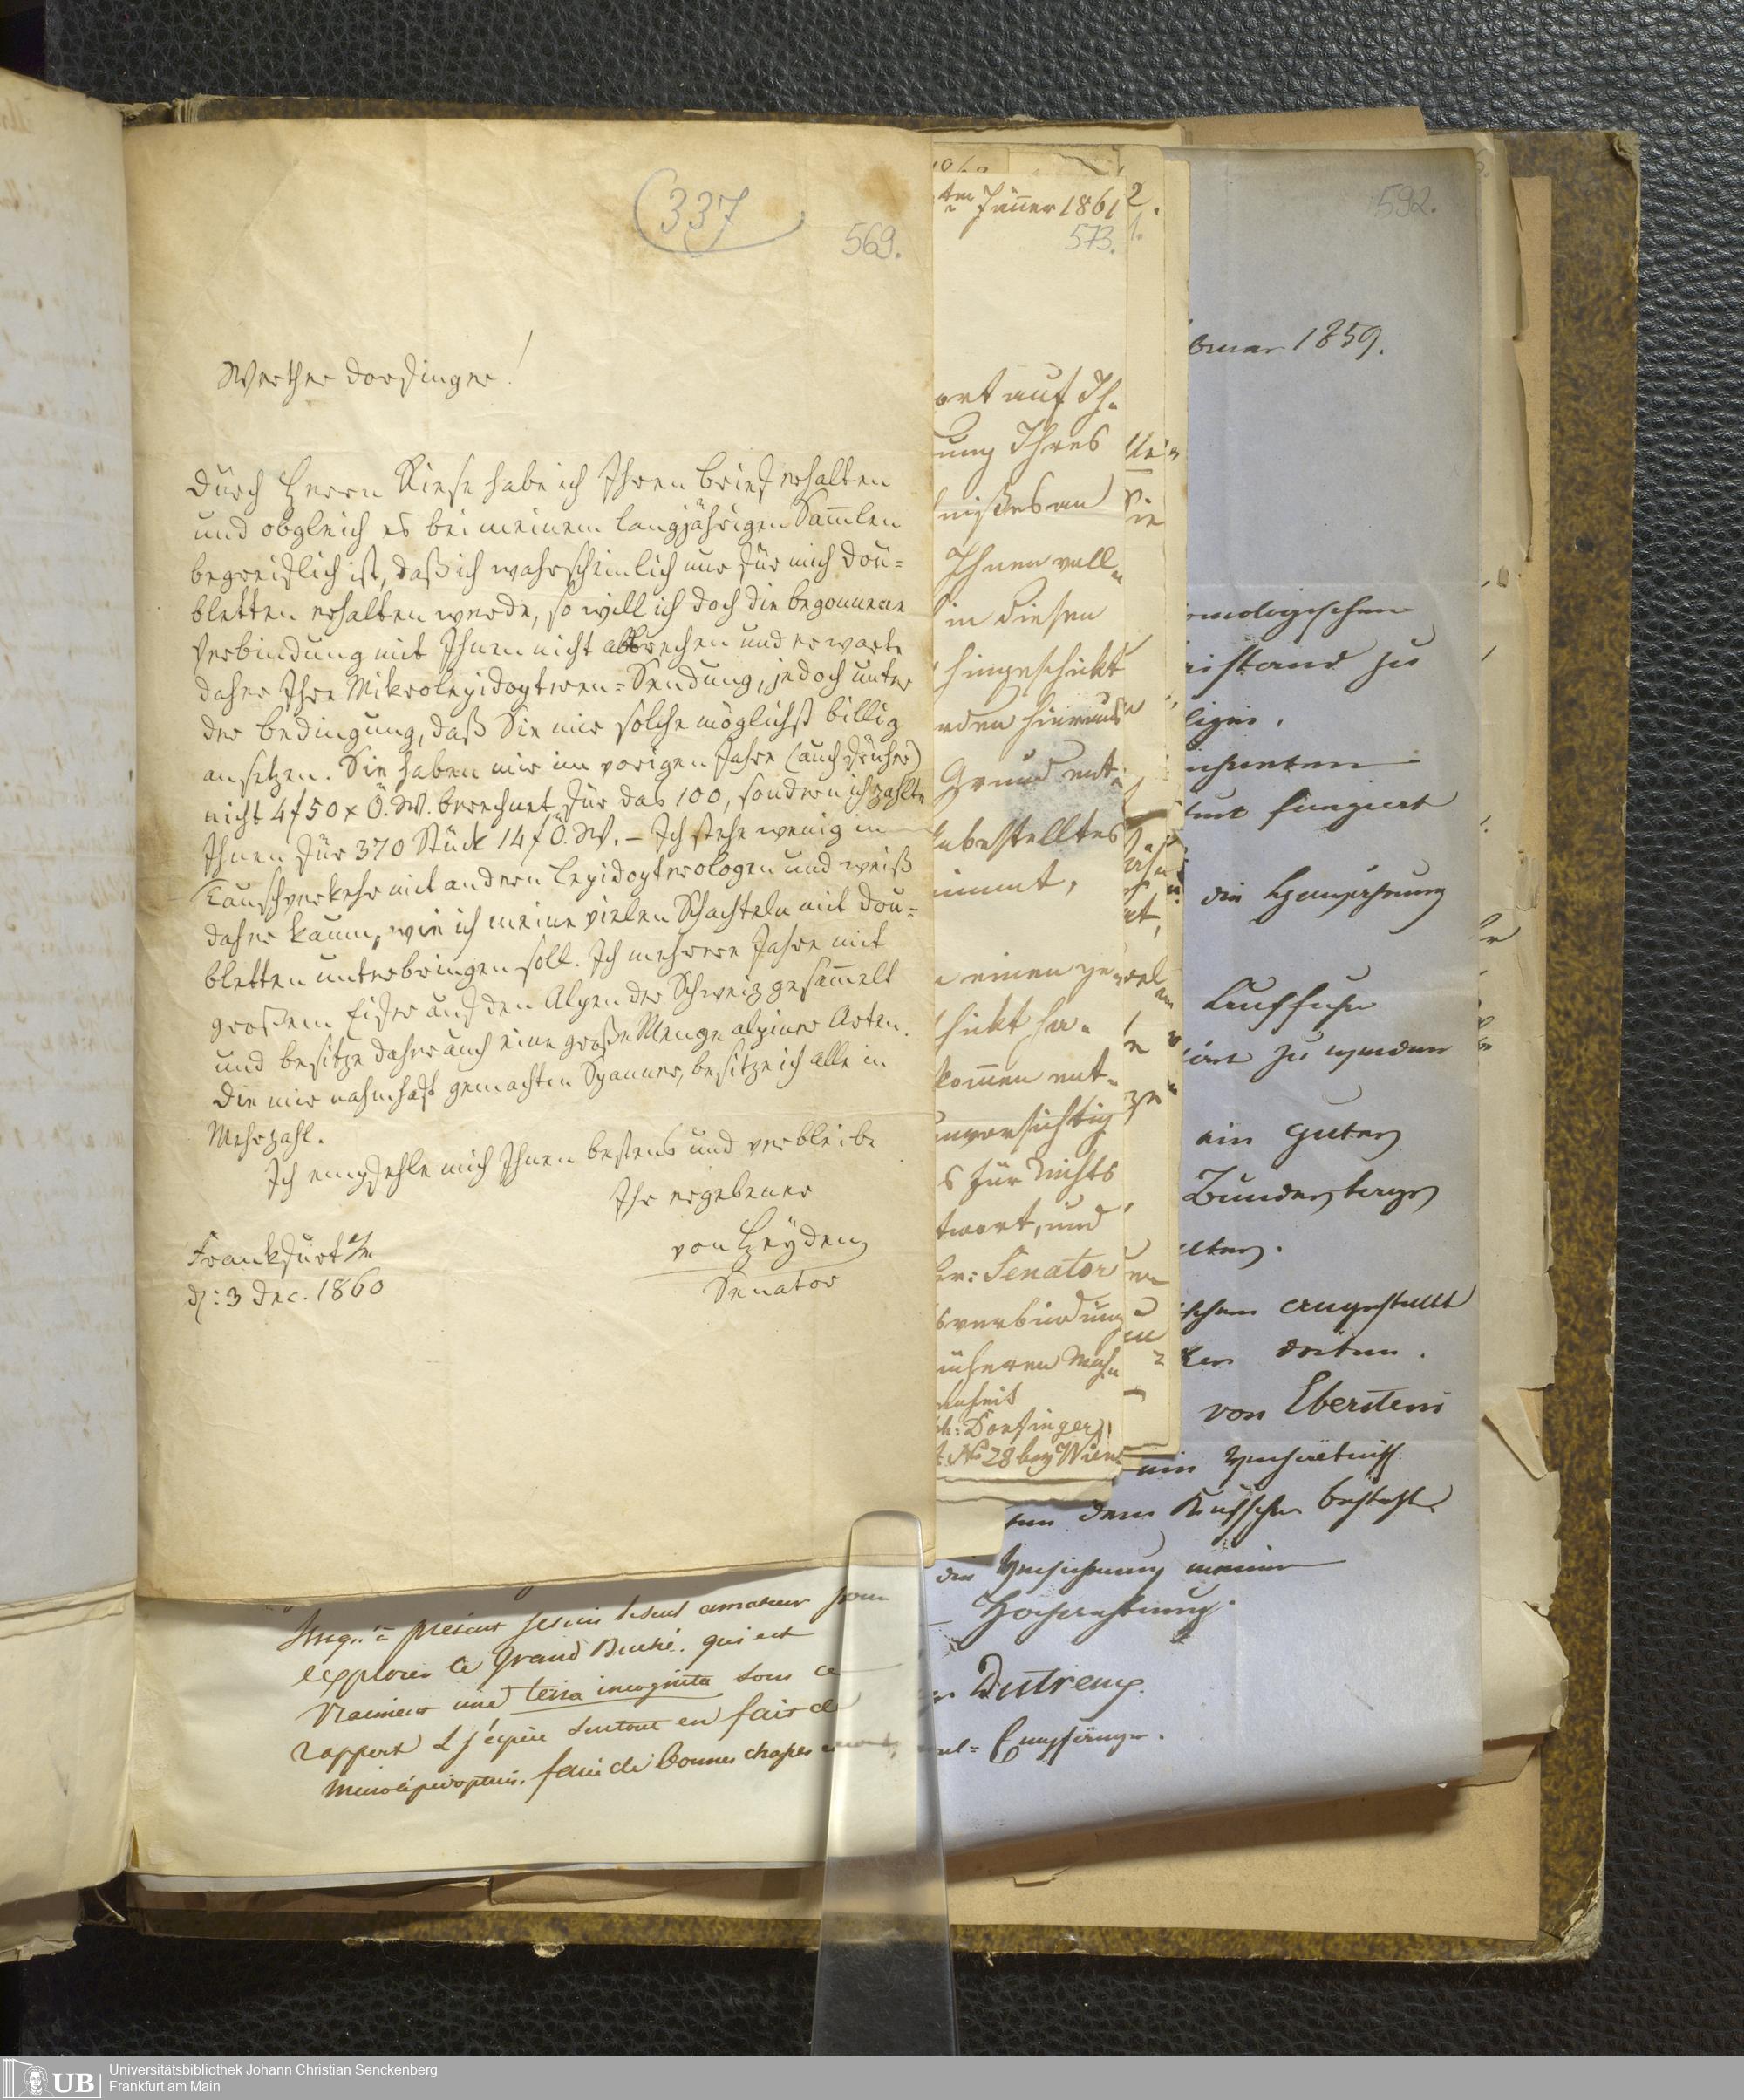 (337)
569.
Werther Dorfinger!
Durch Herrn Riese habe ich Ihren Brief erhalten
und obgleich es bei meinem langjährigen Sam̄len
begreiflich ist, daß ich wahrscheinlich nur für mich Dou=
bletten erhalten werde, so will ich doch die begonnene
Verbindung mit Ihnen nicht abbrechen und erwarte
daher Ihre Mikrolepidoptern=Sendung, jedoch unter
der Bedingung, daß Sie mir solche möglichst billig
ansetzen. Sie haben mir im vorigen Jahre (auch früher)
nicht 4f 50x Ö.W. berechnet für das 100, sondern ich zahlte
Ihnen für 370 Stück 14f Ö.W. – Ich stehe wenig in
Tauschverkehr mit andern Lepidopterologen und weiß
daher kaum, wie ich meine vielen Schachteln mit Dou=
bletten unterbringen soll. Ich mehrere Jahre mit
großem Eifer auf den Alpen der Schweiz gesam̄elt
und besitze daher auch eine große Menge alpiner Arten.
Die mir nahmhaft gemachten Spanner, besitze ich alle in
Mehrzahl.
Ich empfehle mich Ihnen bestens und verbleibe
Ihr ergebener
von Heyden
Senator
Frankfurt a/m
d: 3 Dec. 1860
ten Jäner 1861
573.
ort auf Ih=
ung Ihres
nißes an
Ihnen voll=
in diesen
hingeschikt
rden hieraus
Grund ent=
unbestelltes
nimmt,
einen ge=
schikt ha=
kom̄en ent=
unvorsichtig
s für Nichts
twort, und
Hr: Senator
sverbindung
üheren
nheit
Dorfinger
No 28 bey Wien
592.
bruar 1859.
omologischen
eistand zu
fungiert
die
zu werden
ein guter
angestellt
von Eberstein
ein
dem bestehet
die Versicherung meiner
Hochachtung.
Dutreux
Empfänger.
Jusqu'à présent je suis le seul amateur pour
explorer le Grand Duché, qui est
vraiment une terra incognita sous ce
rapport & j'espère surtout en fait de
microlépidoptères, faire de bonnes chasses
Universitätsbibliothek Johann Christian Senckenberg
Frankfurt am Main
UB